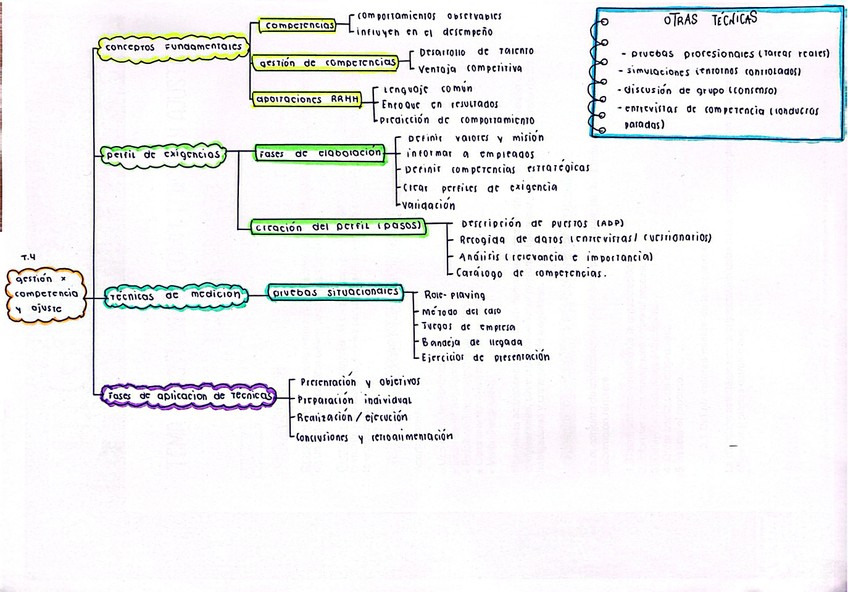 T.4
gestión x
competencia
y ajuste
conceptos fundamentales
competencias
comportamientos observables
influyen en el desempeño
gestión de competencias
Desarrollo de talento
Ventaja competitiva
aportaciones RRHH
Lenguaje común
Enfoque en resultados
Predicción de comportamiento
perfil de exigencias
fases de elaboración
Definir valores y misión
informar a empleados
Definir competencias estratégicas
Crear perfiles de exigencia
Validación
creación del perfil (pasos)
Descripción de puestos (ADP)
Recogida de datos (entrevistas/ cuestionarios)
Análisis (relevancia e importancia)
Catálogo de competencias.
técnicas de medición
pruebas situacionales
Role-playing
Método del caso
Juegos de empresa
Bandeja de llegada
Ejercicios de presentación
fases de aplicación de técnicas
Presentación y objetivos
Preparación individual
Realización / ejecución
Conclusiones y retroalimentación
OTRAS TÉCNICAS
- pruebas profesionales (tareas reales)
- simulaciones (entornos controlados)
- discusión de grupo (consenso)
- entrevistas de competencia (conductas
pasadas)